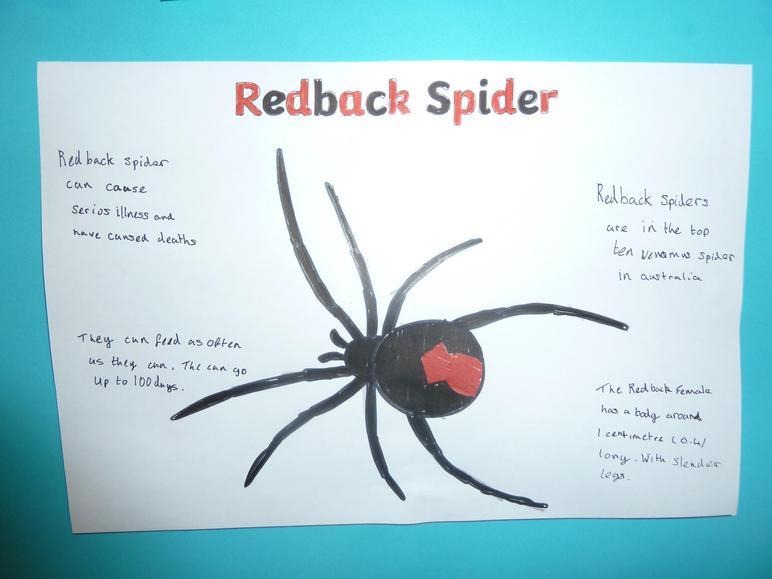 Redback Spider
Redback spider
can cause
serios illness and
have caused deaths
Redback Spiders
are in the top
ten venomus spider
in australia
They can feed as often
as they can. The can go
up to 100 days.
The Redback Female
has a body around
1 centimetre (0.4/
long. With slender
legs.